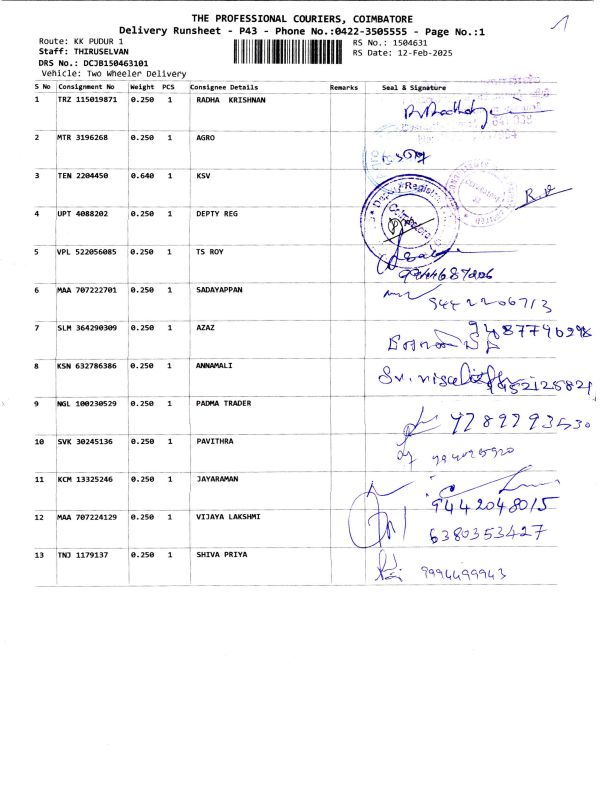 1
THE PROFESSIONAL COURIERS, COIMBATORE
Delivery Runsheet - P43 - Phone No.:0422-3505555 - Page No.:1
Route: KK PUDUR 1
RS No.: 1504631
Staff: THIRUSELVAN
RS Date: 12-Feb-2025
DRS No.: DCJB150463101
Vehicle: Two Wheeler Delivery
S No Consignment No Weight PCS Consignee Details Remarks Seal & Signature
1 TRZ 115019871 0.250 1 RADHA KRISHNAN
2 MTR 3196268 0.250 1 AGRO
3 TEN 2204450 0.640 1 KSV
R.P
4 UPT 4088202 0.250 1 DEPTY REG
Deputy Registrar
5 VPL 522056085 0.250 1 TS ROY
6 MAA 707222701 0.250 1 SADAYAPPAN
9442206713
7 SLM 364290309 0.250 1 AZAZ
8 KSN 632786386 0.250 1 ANNAMALI
9 NGL 100230529 0.250 1 PADMA TRADER
10 SVK 30245136 0.250 1 PAVITHRA
11 KCM 13325246 0.250 1 JAYARAMAN
9442048015
12 MAA 707224129 0.250 1 VIJAYA LAKSHMI
6380353427
13 TNJ 1179137 0.250 1 SHIVA PRIYA
9994499943